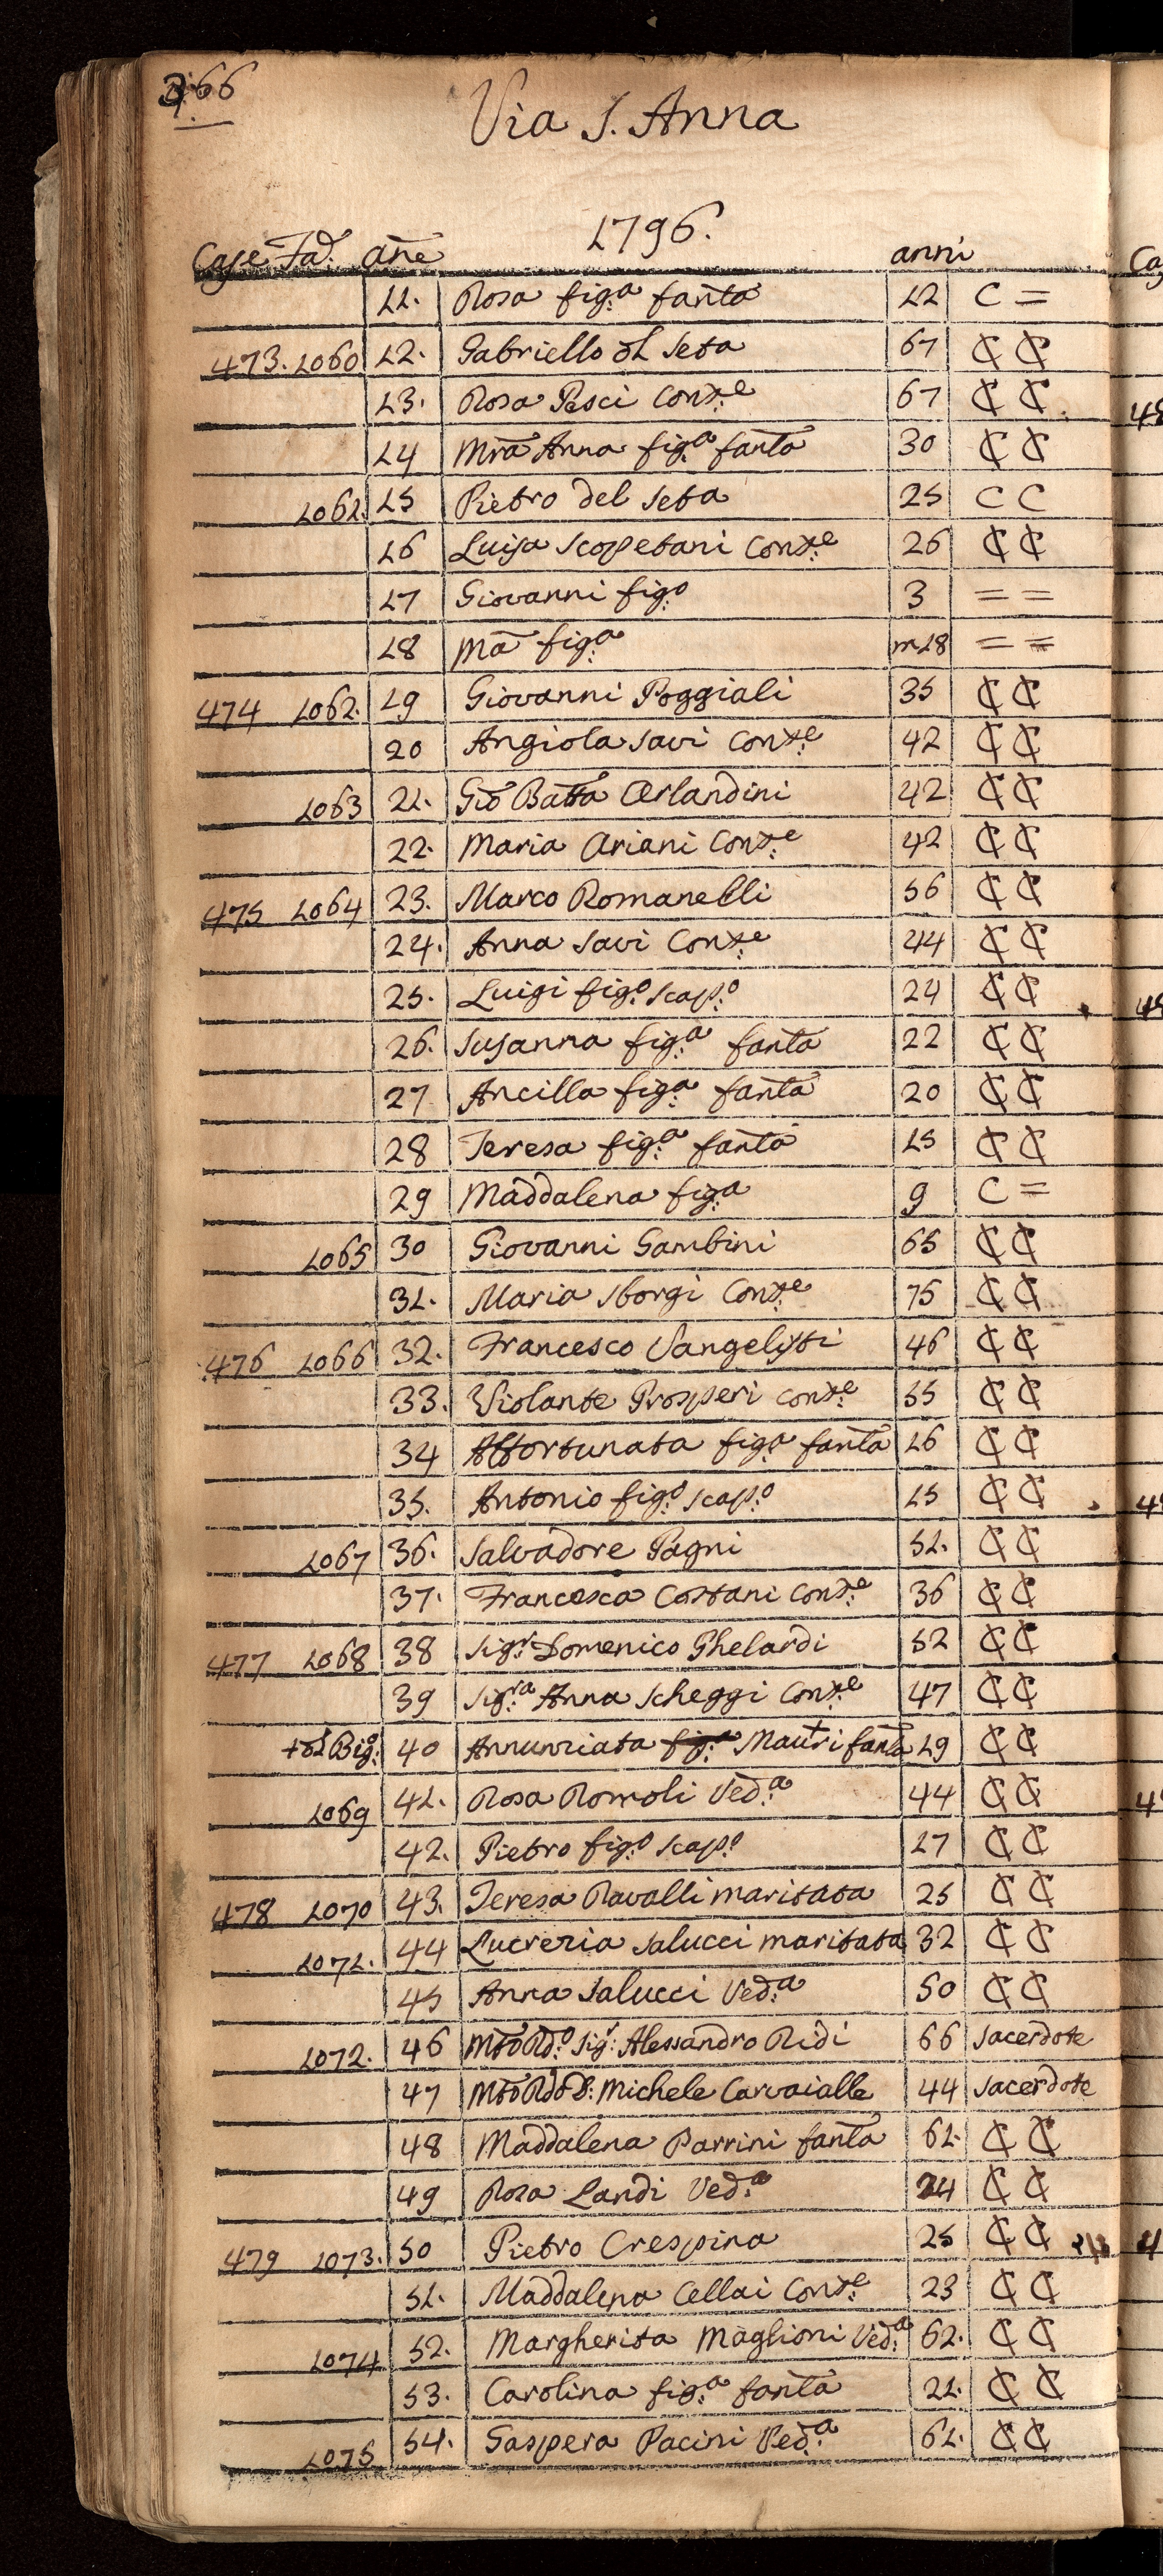 366
Via S. Anna
1796.
Case Fa. añe anni
11. Rosa fig:a fanta 12 C =
473. 1060 12. Gabriello dl Seta 67 ₵ ₵
13. Rosa Pesci Conte 67 ₵ ₵
14 Mra Anna fig:a fanta 30 ₵ ₵
1061. 15 Pietro del Seta 25 C C
16 Luisa Scopetani Conte 26 ₵ ₵
17 Giovanni fig:o 3 = =
18 Ma fig:a m18 = =
474 1062. 19 Giovanni Poggiali 35 ₵ ₵
20 Angiola Savi Conte 42 ₵ ₵
1063 21. Gio Batta Orlandini 42 ₵ ₵
22. Maria Ariani Conte 42 ₵ ₵
475 1064 23. Marco Romanelli 56 ₵ ₵
24. Anna Savi Conte 44 ₵ ₵
25. Luigi fig:o scap:o 24 ₵ ₵
26. Susanna fig:a fanta 22 ₵ ₵
27 Ancilla fig:a fanta 20 ₵ ₵
28 Teresa fig:a fanta 15 ₵ ₵
29 Maddalena fig:a 9 C =
1065 30 Giovanni Gambini 65 ₵ ₵
31. Maria Sborgi Conte 75 ₵ ₵
476 1066 32. Francesco Vangelisti 46 ₵ ₵
33. Violante Prosperi Conte 55 ₵ ₵
34 Affortunata fig:a fanta 16 ₵ ₵
35. Antonio fig:o scap:o 15 ₵ ₵
1067 36. Salvadore Pagni 51. ₵ ₵
37. Francesca Costani Conte 36 ₵ ₵
477 1068 38 Sig:r Domenico Ghelardi 52 ₵ ₵
39 Sig:ra Anna Scheggi Conte 47 ₵ ₵
+dl Big: 40 Annunziata fig:a Mautri fanta 19 ₵ ₵
1069 41. Rosa Romoli Ved:a 44 ₵ ₵
42. Pietro fig:o scap:o 17 ₵ ₵
478 1070 43. Teresa Ravalli maritata 25 ₵ ₵
1071. 44 Lucrezia Salucci maritata 32 ₵ ₵
45 Anna Salucci Ved:a 50 ₵ ₵
1072. 46 Mto Rd:o Sig:r Alessandro Ridi 66 Sacerdote
47 Mto Rdo D: Michele Carvaialle 44 Sacerdote
48 Maddalena Parrini fanta 61. ₵ ₵
49 Rosa Landi Ved:a 24 ₵ ₵
479 1073. 50 Pietro Crespina 25 ₵ ₵
51. Maddalena Cellai Conte 23 ₵ ₵
1074 52. Margherita Maglioni Ved:a 62. ₵ ₵
53. Carolina fig:a fanta 21. ₵ ₵
1075 54. Gaspera Pacini Ved:a 61. ₵ ₵